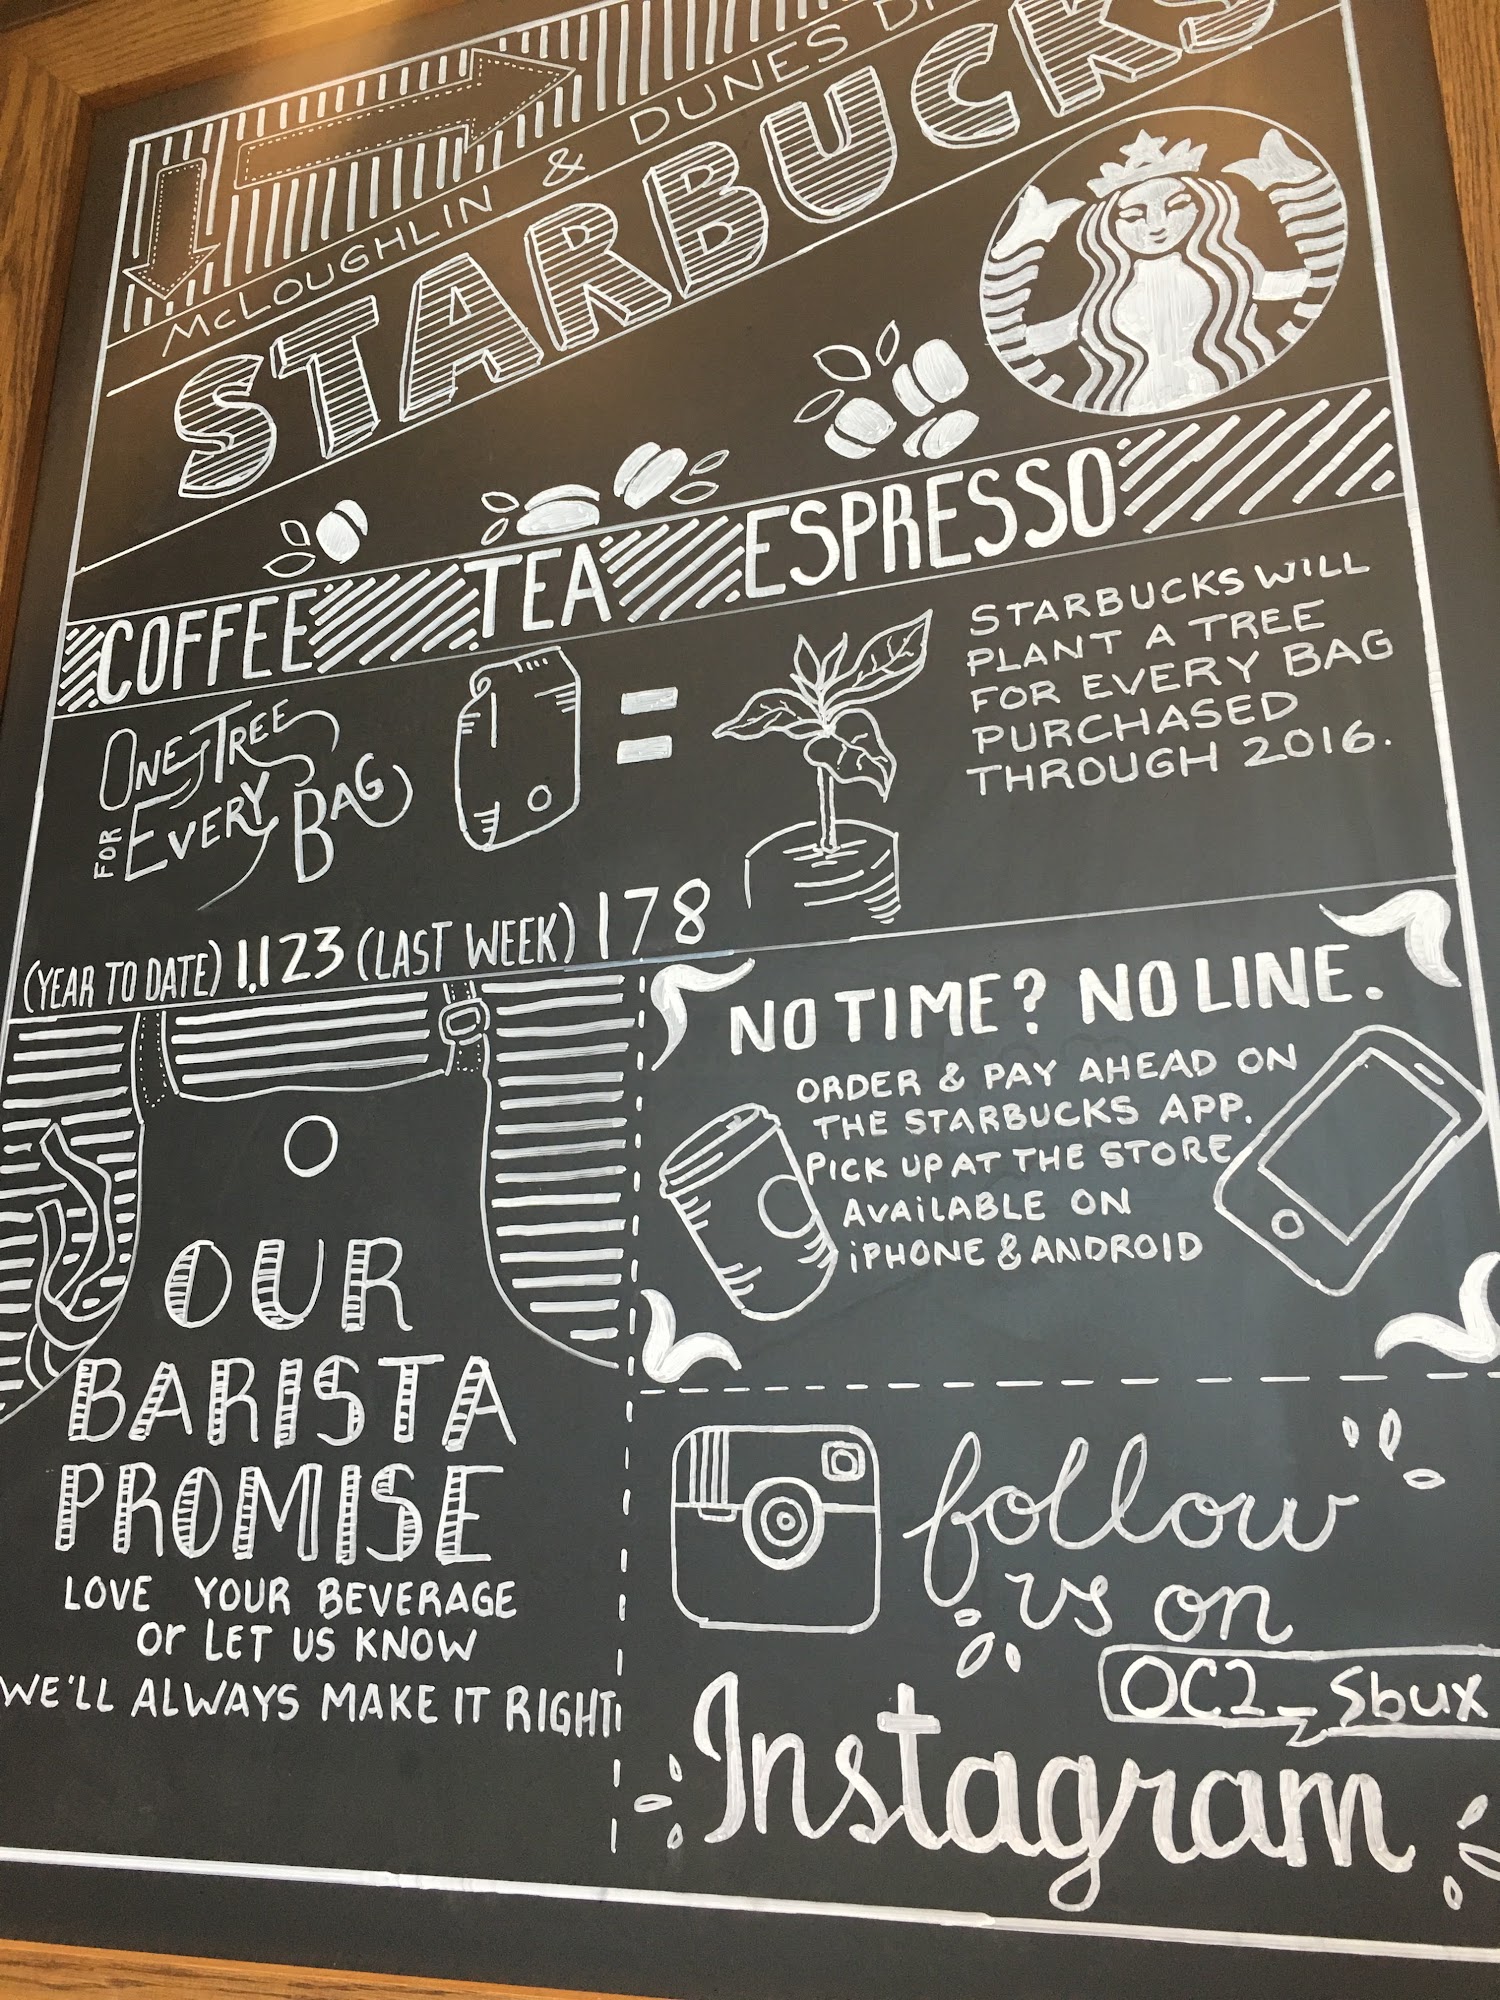 McLOUGHLIN & DUNES
STARBUCKS
COFFEE TEA ESPRESSO
ONE TREE
FOR EVERY BAG
=
STARBUCKS WILL
PLANT A TREE
FOR EVERY BAG
PURCHASED
THROUGH 2016.
(YEAR TO DATE) 1,123 (LAST WEEK) 178
NO TIME? NO LINE.
ORDER & PAY AHEAD ON
THE STARBUCKS APP.
PICK UP AT THE STORE
AVAiLABLE ON
iPHONE & ANDROID
OUR
BARISTA
PROMISE
LOVE YOUR BEVERAGE
Or LET US KNOW
WE'LL ALWAYS MAKE IT RIGHT
follow
us on
OC2_Sbux
Instagram